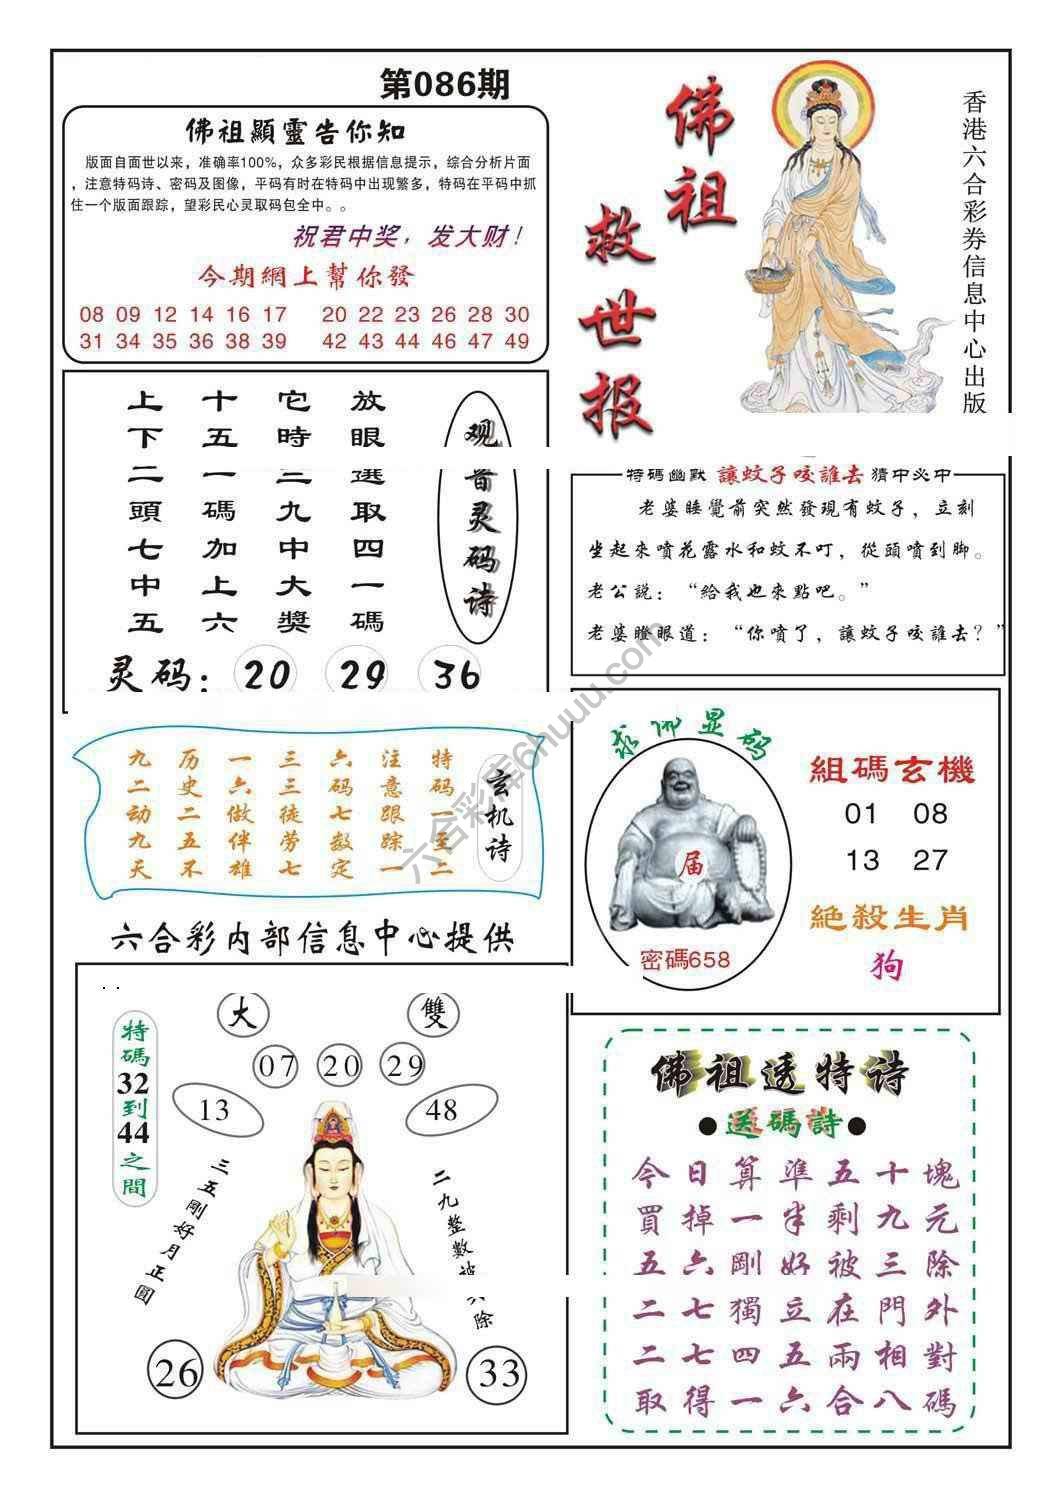 第086期
佛祖顯靈告你知
版面自面世以来，准确率100%，众多彩民根据信息提示，综合分析片面
，注意特码诗、密码及图像，平码有时在特码中出现繁多，特码在平码中抓
住一个版面跟踪，望彩民心灵取码包全中。。
祝君中奖，发大财！
今期網上幫你發
08 09 12 14 16 17 20 22 23 26 28 30
31 34 35 36 38 39 42 43 44 46 47 49
佛祖
救世报
香港六合彩券信息中心出版
放眼選取四一碼
它時三九中大獎
十五一碼加上六
上下二頭七中五
观音灵码诗
灵码：20 29 36
特碼幽默 讓蚊子咬誰去 猜中必中
老婆睡覺前突然發現有蚊子，立刻
坐起來噴花露水和蚊不叮，從頭噴到脚。
老公説：“給我也來點吧。”
老婆瞪眼道：“你噴了，讓蚊子咬誰去？”
玄机诗
特码一至二
注意跟踪一
六码七数定
三三徒劳七
一六做伴雄
历史二五不
九二动九天
求佛显码
届
密碼658
組碼玄機
01 08
13 27
絶殺生肖
狗
六合彩内部信息中心提供
大 雙
07 20 29
13 48
特碼32到44之間
三五剛好月正圓
二九整數被
除
26 33
佛祖透特诗
●送碼詩●
今日算準五十塊
買掉一半剩九元
五六剛好被三除
二七獨立在門外
二七四五兩相對
取得一六合八碼
六合彩库6huuu.com